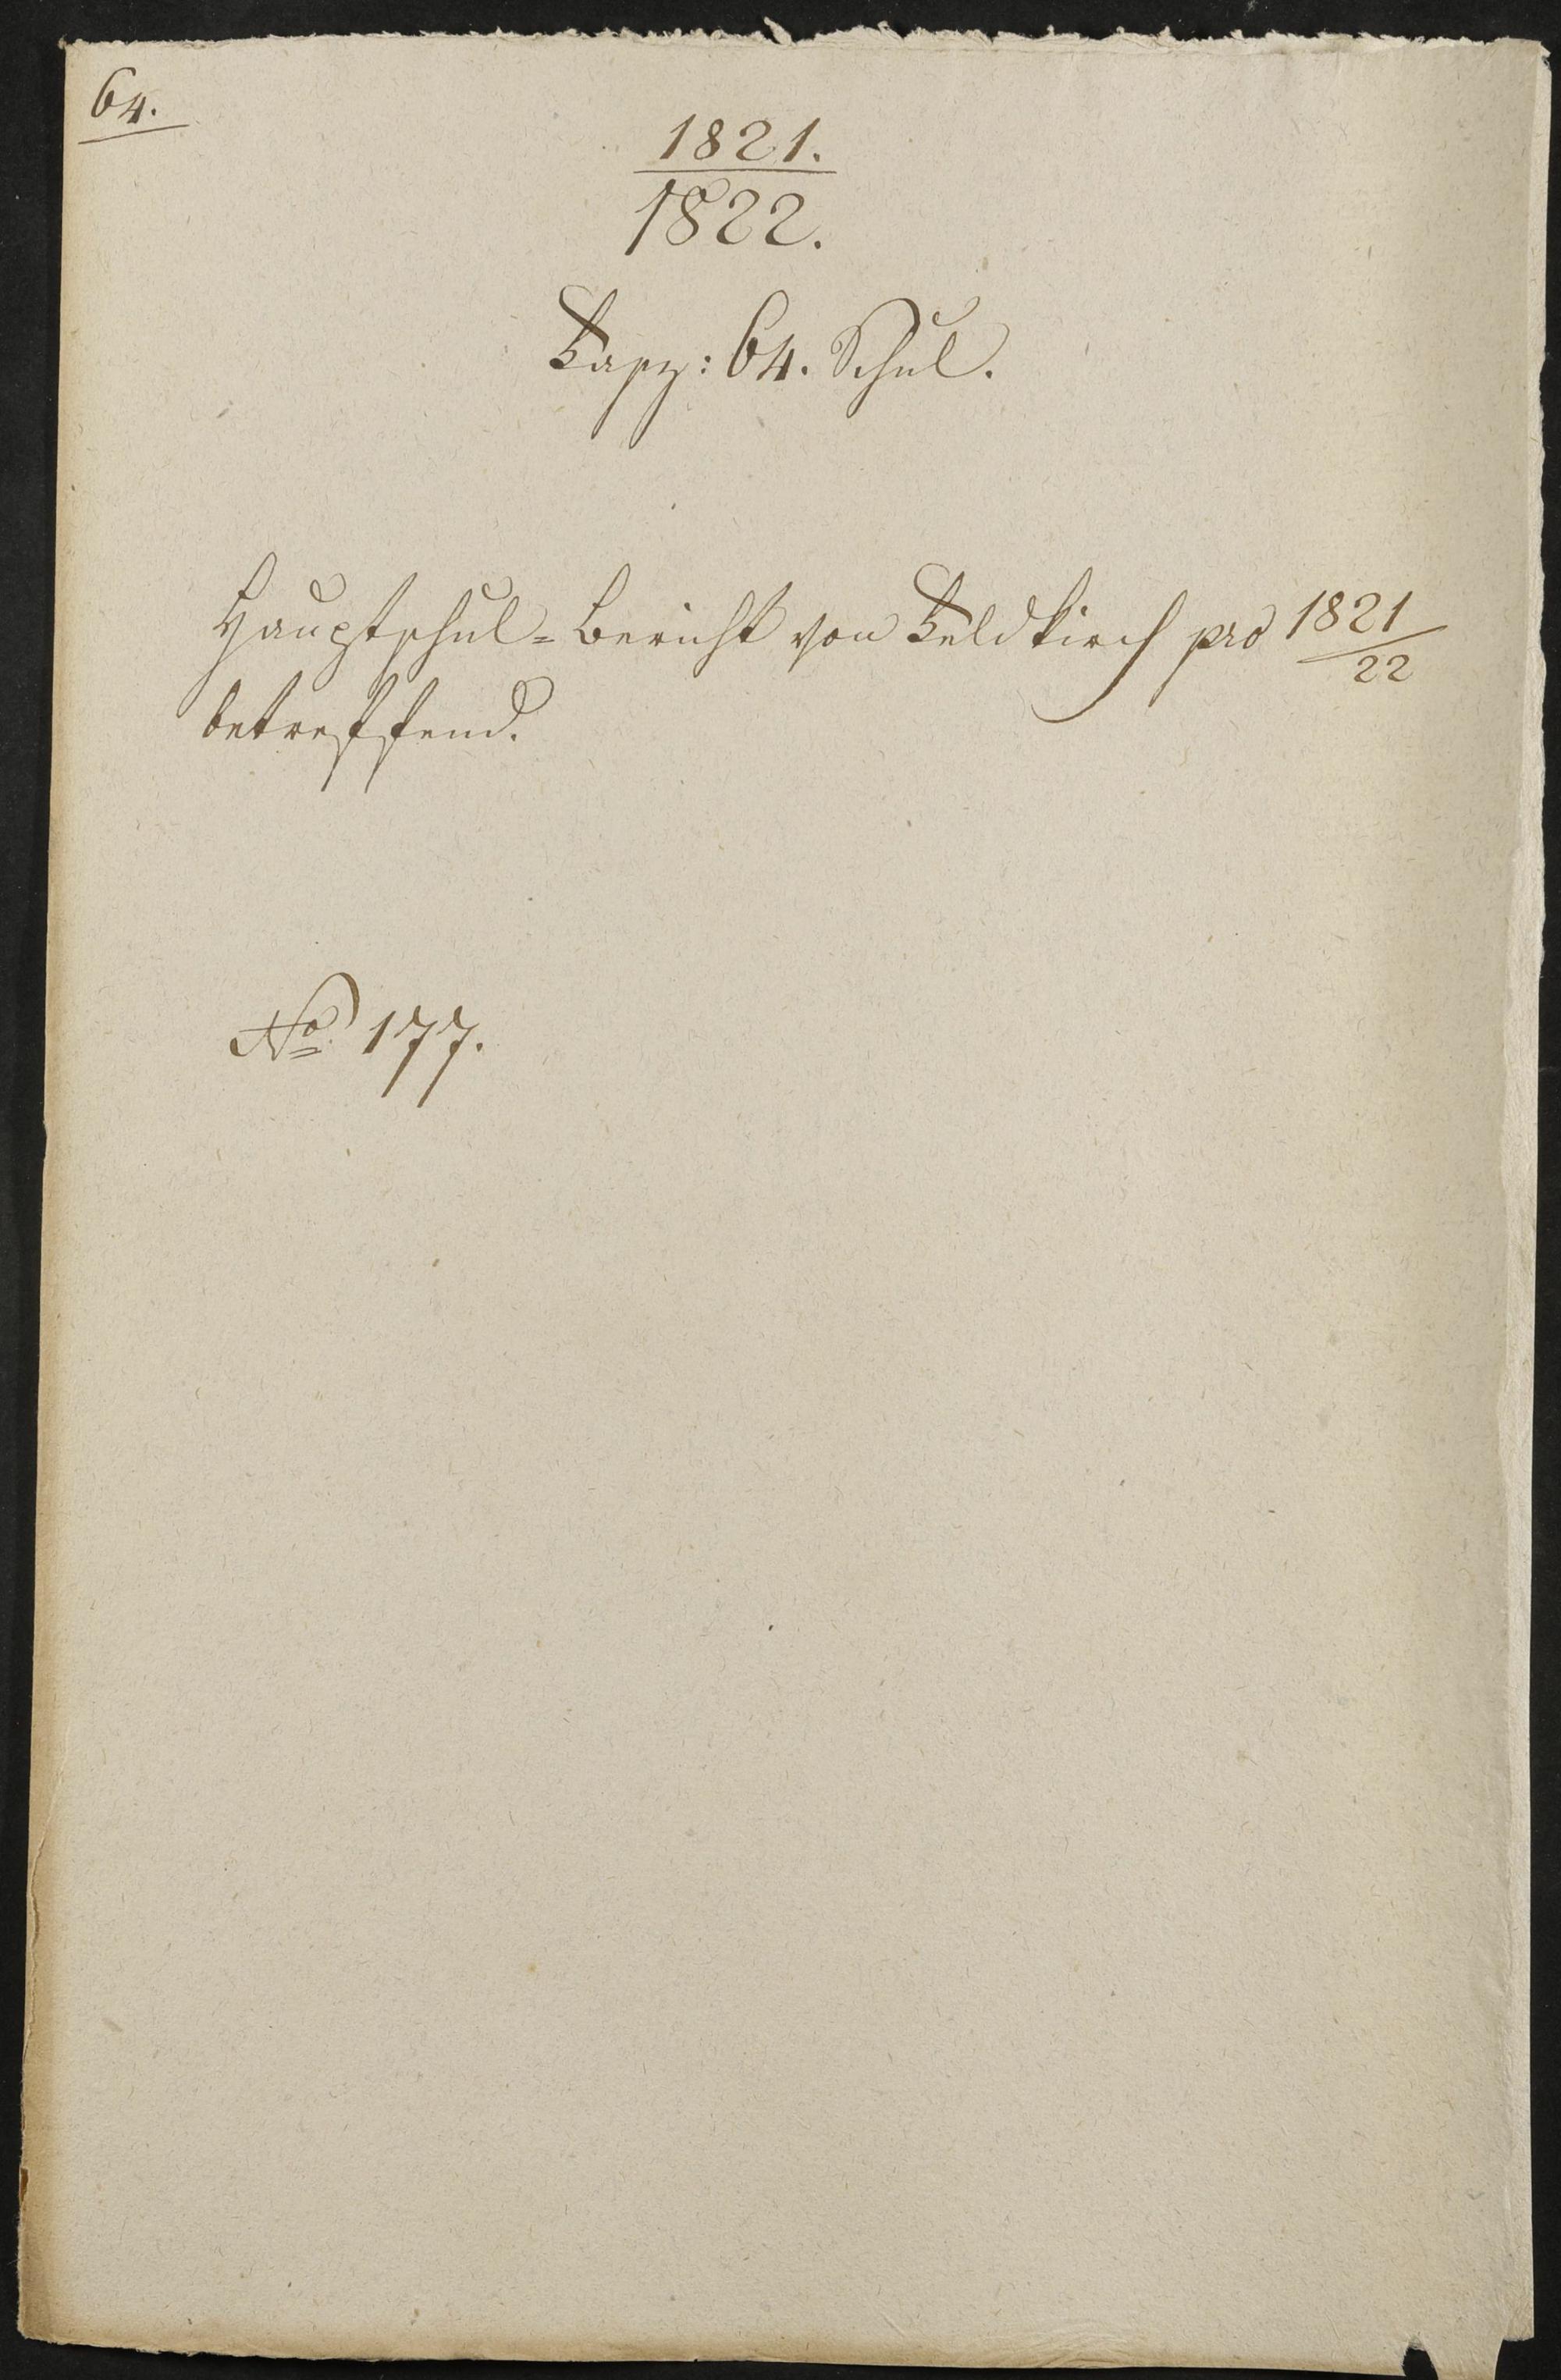 64.
1821.
1822.
Fasz: 64. Schul.
Hauptschul=Bericht von Feldkirch pro 1821/22
betreffend.
No 177.